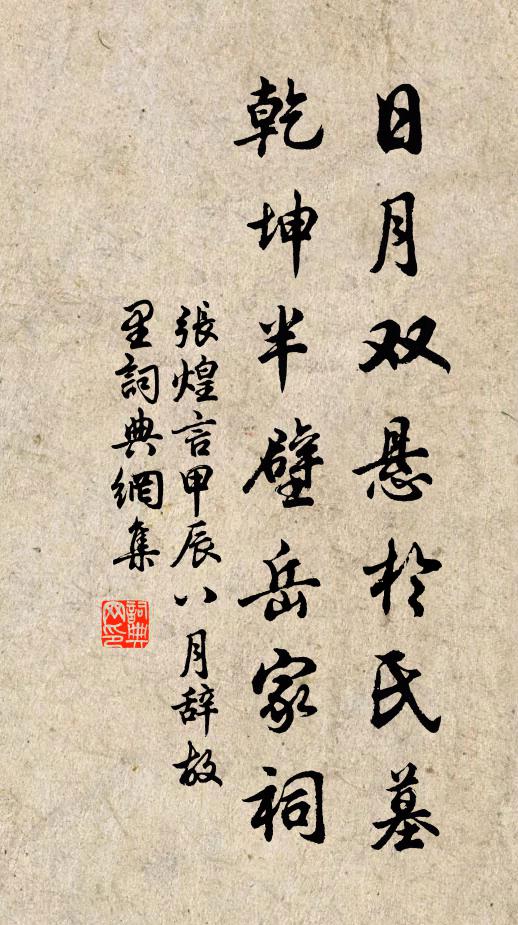 日月双悬於氏墓
乾坤半壁岳家祠
張煌言甲辰八月辞故
里詞典網集
詞典
网印